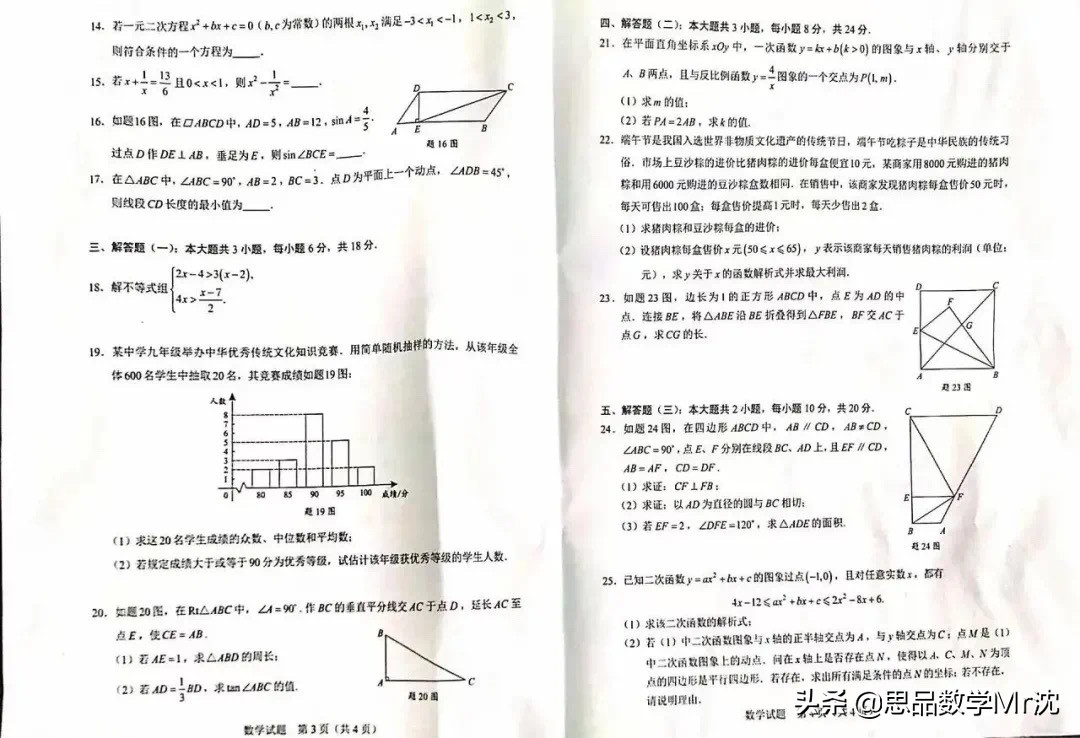 14. 若一元二次方程x²+bx+c=0 (b,c为常数) 的两根x₁,x₂满足-3<x₁<-1, 1<x₂<3,
则符合条件的一个方程为____.
15. 若x+1/x=13/6且0<x<1, 则x²-1/x²=____.
16. 如题16图, 在▱ABCD中, AD=5, AB=12, sinA=4/5.
过点D作DE⊥AB, 垂足为E, 则sin∠BCE=____.
D
C
A
E
B
题16图
17. 在△ABC中, ∠ABC=90°, AB=2, BC=3. 点D为平面上一个动点, ∠ADB=45°,
则线段CD长度的最小值为____.
三、解答题(一): 本大题共3小题, 每小题6分, 共18分.
18. 解不等式组
2x-4>3(x-2),
4x>(x-7)/2.
19. 某中学九年级举办中华优秀传统文化知识竞赛. 用简单随机抽样的方法, 从该年级全
体600名学生中抽取20名, 其竞赛成绩如题19图:
人数
8
7
6
5
4
3
2
1
0 80 85 90 95 100 成绩/分
题19图
(1) 求这20名学生成绩的众数、中位数和平均数;
(2) 若规定成绩大于或等于90分为优秀等级, 试估计该年级获优秀等级的学生人数.
20. 如题20图, 在Rt△ABC中, ∠A=90°. 作BC的垂直平分线交AC于点D, 延长AC至
点E, 使CE=AB.
(1) 若AE=1, 求△ABD的周长;
(2) 若AD=1/3BD, 求tan∠ABC的值.
B
A
C
题20图
数学试题 第3页(共4页)
四、解答题(二): 本大题共3小题, 每小题8分, 共24分.
21. 在平面直角坐标系xOy中, 一次函数y=kx+b(k>0)的图象与x轴、y轴分别交于
A、B两点, 且与反比例函数y=4/x图象的一个交点为P(1,m).
(1) 求m的值;
(2) 若PA=2AB, 求k的值.
22. 端午节是我国入选世界非物质文化遗产的传统节日, 端午节吃粽子是中华民族的传统习
俗. 市场上豆沙粽的进价比猪肉粽的进价每盒便宜10元, 某商家用8000元购进的猪肉
粽和用6000元购进的豆沙粽盒数相同. 在销售中, 该商家发现猪肉粽每盒售价50元时,
每天可售出100盒; 每盒售价提高1元时, 每天少售出2盒.
(1) 求猪肉粽和豆沙粽每盒的进价;
(2) 设猪肉粽每盒售价x元(50≤x≤65), y表示该商家每天销售猪肉粽的利润(单位:
元), 求y关于x的函数解析式并求最大利润.
23. 如题23图, 边长为1的正方形ABCD中, 点E为AD的中
点. 连接BE, 将△ABE沿BE折叠得到△FBE, BF交AC于
点G, 求CG的长.
D
C
F
G
E
A
B
题23图
五、解答题(三): 本大题共2小题, 每小题10分, 共20分.
24. 如题24图, 在四边形ABCD中, AB∥CD, AB≠CD,
∠ABC=90°, 点E、F分别在线段BC、AD上, 且EF∥CD,
AB=AF, CD=DF.
(1) 求证: CF⊥FB;
(2) 求证: 以AD为直径的圆与BC相切;
(3) 若EF=2, ∠DFE=120°, 求△ADE的面积.
C
D
E
F
B
A
题24图
25. 已知二次函数y=ax²+bx+c的图象过点(-1,0), 且对任意实数x, 都有
4x-12≤ax²+bx+c≤2x²-8x+6.
(1) 求该二次函数的解析式;
(2) 若(1)中二次函数图象与x轴的正半轴交点为A, 与y轴交点为C; 点M是(1)
中二次函数图象上的动点. 问在x轴上是否存在点N, 使得以A、C、M、N为顶
点的四边形是平行四边形. 若存在, 求出所有满足条件的点N的坐标; 若不存在,
请说明理由.
数学试题
头条 @思品数学Mr沈